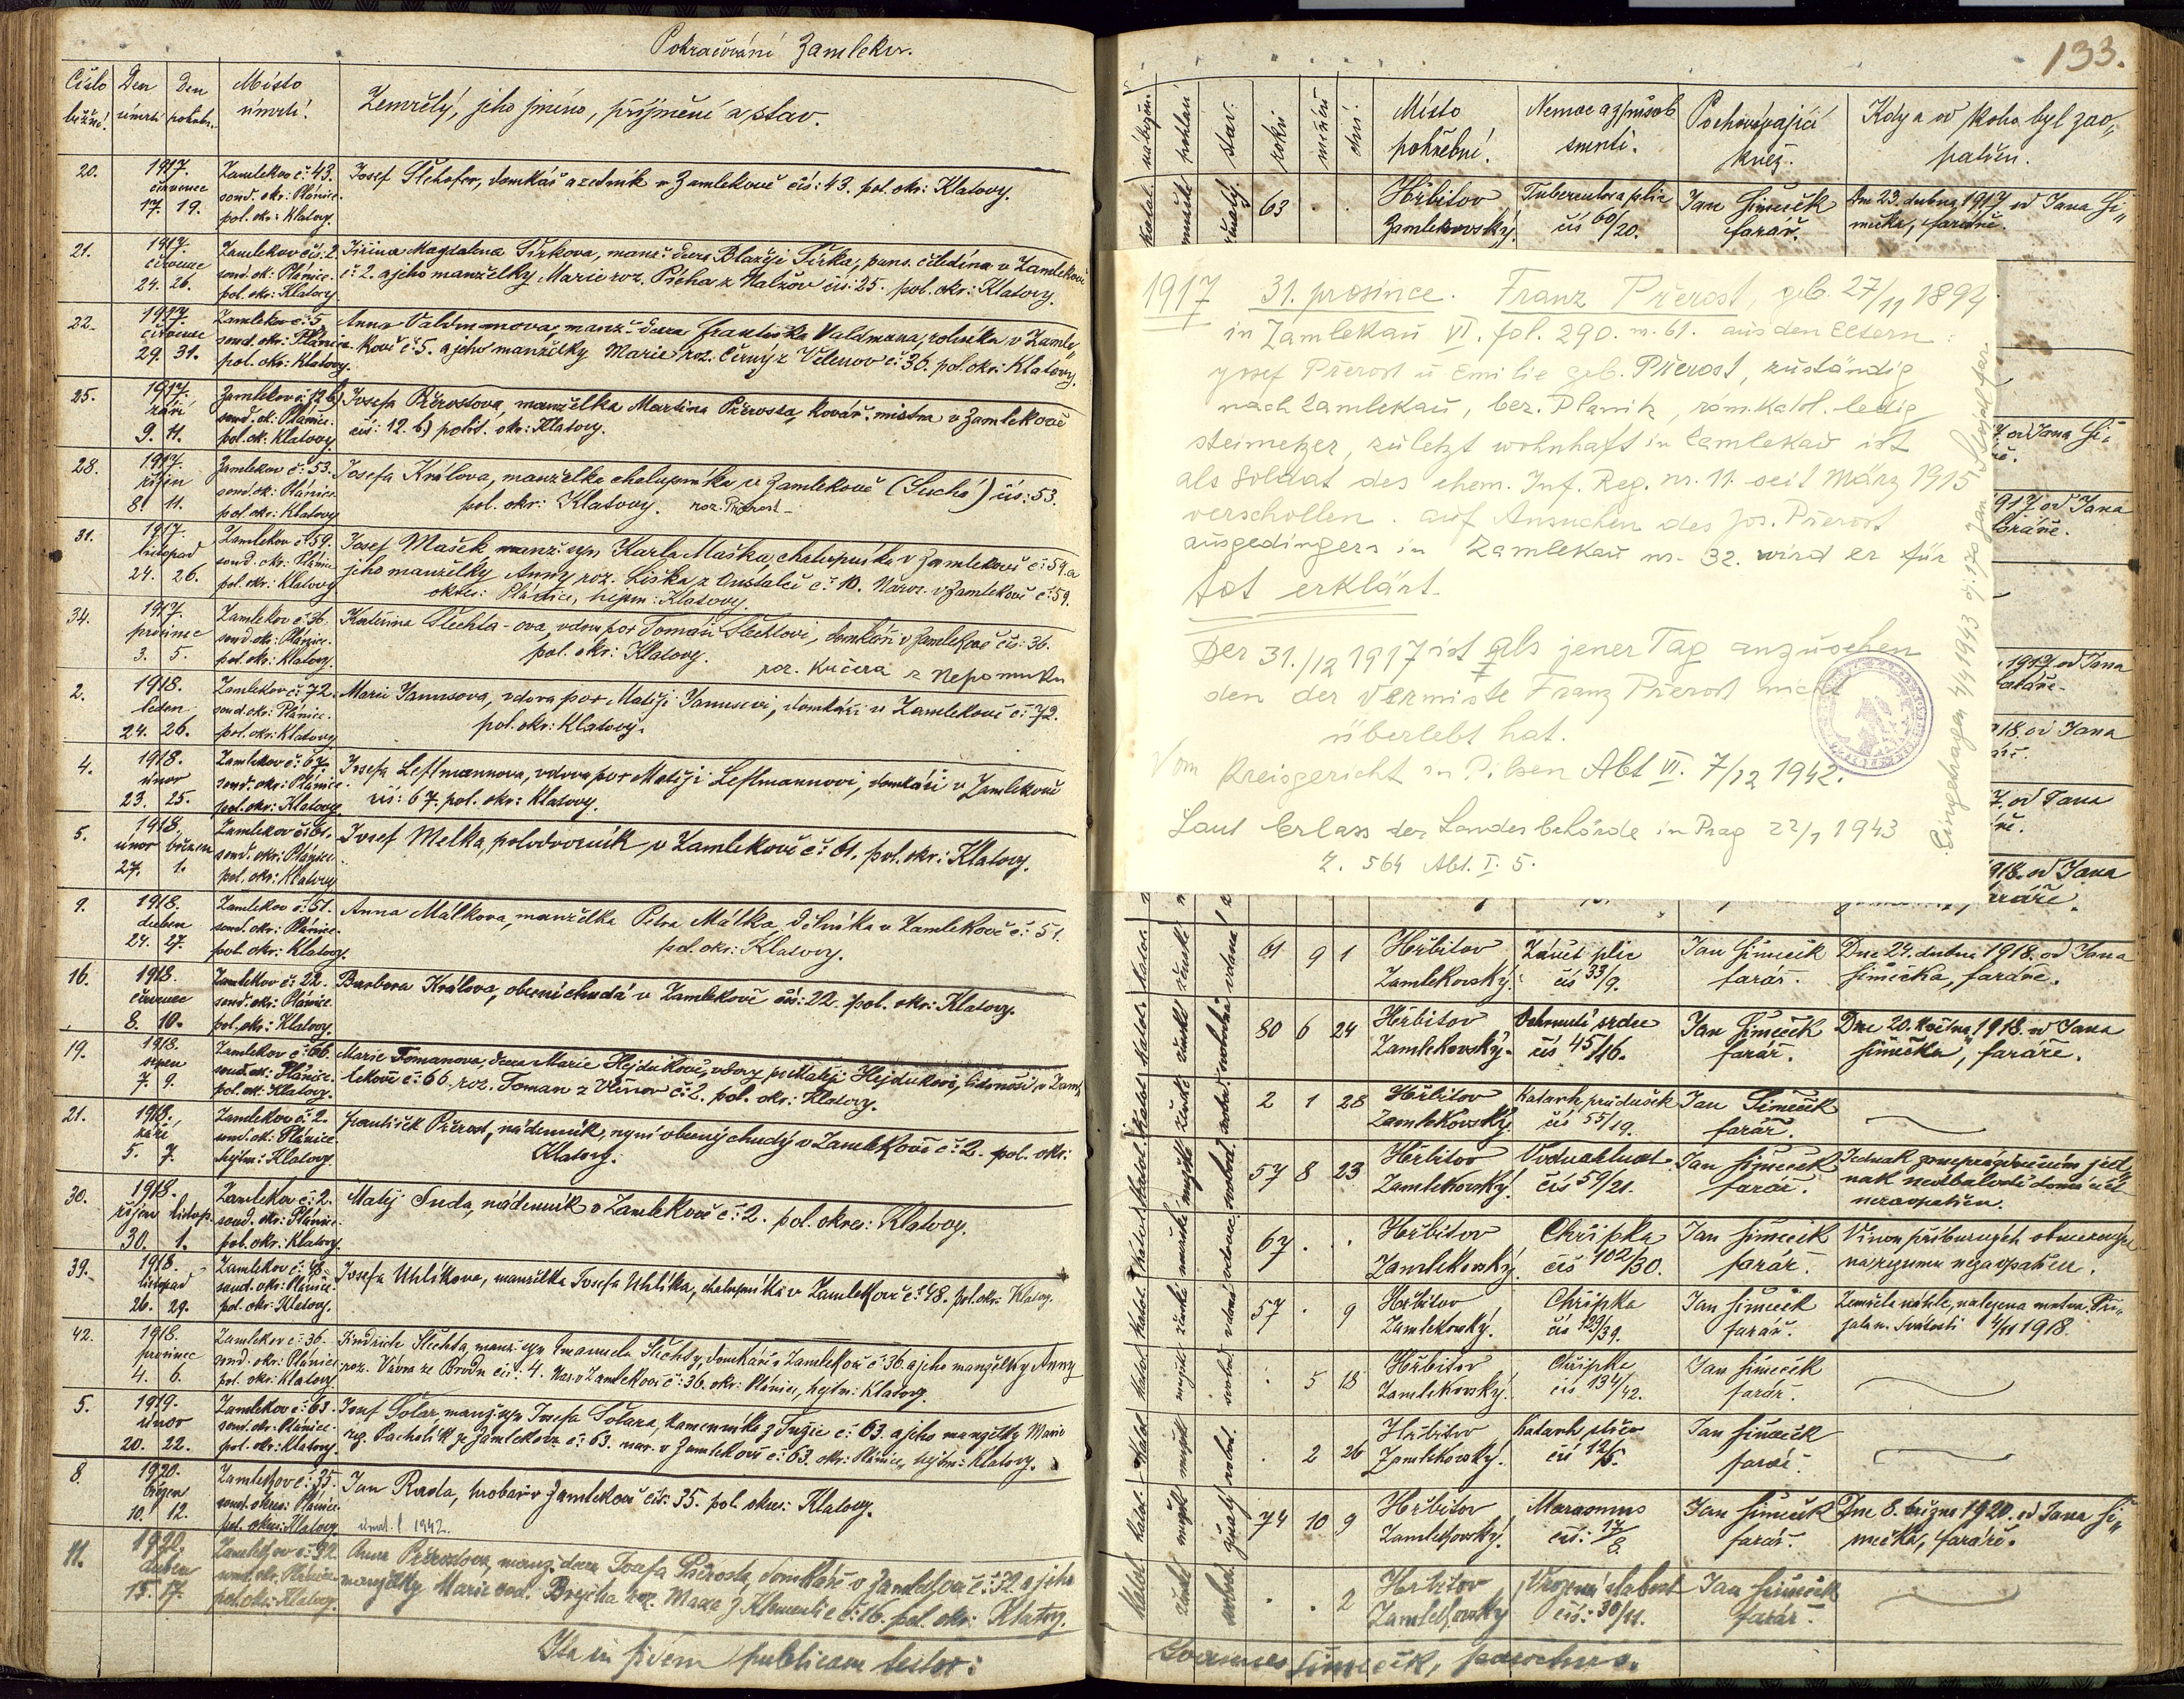 Pokračování Zamlekov.
Číslo běžné.
Den úmrtí
Den pohřbu.
Místo úmrtí.
Zemřelý, jeho jméno, příjmení a stav.
20.
1917. červenec 17. 19.
Zamlekov č: 43. soud. okr: Plánice. pol. okr: Klatovy.
Josef domkář a zedník v Zamlekově čís: 43. pol. okr: Klatovy.
21.
1917. červenec 24. 26.
Zamlekov čís: 2. soud. ok: Plánice. pol. okr: Klatovy.
Magdalena manž: dcera Blažeje čeledína v Zamlekově
č: 2. a jeho manželky Marie roz. Pícha z čís: 25. pol. okr: Klatovy.
22.
1917. červenec 29. 31.
Zamlekov č: 5 soud. okr: Plánice pol. okr: Klatovy.
Anna Valdmanova, manž: dcera Františka Valdmana, rolníka v Zamle„
kově č: 5. a jeho manželky Marie roz. Černý z č: 36. pol. okr: Klatovy.
25.
1917. září 9. 11.
Zamlekov č: 12 b) soud. ok: Plánice. pol. ok: Klatovy
Josefa Přerostova, manželka Martina Přerosta, kovář. mistra v Zamlekově
čís: 12. b) polit. okr: Klatovy.
28.
1917. říjen 8. 11.
Zamlekov č: 53. soud. ok: Plánice. pol. okr: Klatovy
Josefa Králova, manželka chalupníka v Zamlekově (Suchá) čís: 53.
pol. okr: Klatovy. roz. Přerost
31.
1917. listopad 24. 26.
Zamlekov č: 59. soud. okr: Plánice pol. okr: Klatovy
Josef Mašek manž. syn Karla Maška, chalupníka v Zamlekově č: 59. a
jeho manželky Anny roz. Liška z č: 10. Naroz. v Zamlekově č: 59.
okres: Plánice, hejtm: Klatovy.
34.
1917. prosinec 3. 5.
Zamlekov č: 36. soud. okr: Plánice. pol. okr: Klatovy.
Kateřina Šlechta-ova, vdova po Tomáši Šlechtovi, domkáři v Zamlekově čís: 36.
pol. okr: Klatovy.
roz. Kučera z Nepomuku
2.
1918. leden 24. 26.
Zamlekov č: 72. soud. okr: Plánice. pol. okr: Klatovy
Marie Janusova, vdova po Matěji Janusovi, domkáři v Zamlekově č: 72.
pol. okr: Klatovy.
4.
1918. únor 23. 25.
Zamlekov č: 67. soud. okr: Plánice. pol. okr: Klatovy
Josefa Leflmannova, vdova po Matěji Leflmannovi, domkáři v Zamlekově
čís: 67. pol. okr: Klatovy.
5.
1918. únor březen 27. 1.
Zamlekov č: 61. soud. okr: Plánice. pol. okr: Klatovy
Josef Melka, polodvorník v Zamlekově č: 61. pol. okr: Klatovy.
9.
1918. duben 24. 27.
Zamlekov č: 51. soud. okr: Plánice. pol. okr: Klatovy.
Anna Málkova, manželka Petra Málka, dělníka v Zamlekově č: 51.
pol. okr: Klatovy.
16.
1918. červenec 8. 10.
Zamlekov č: 22. soud. okr: Plánice pol. okr: Klatovy.
Barbora Králova, obecní chudá v Zamlekově čís: 22. pol. okr: Klatovy.
19.
1918. srpen 7. 9.
Zamlekov č: 66. soud. ok: Plánice. pol. ok: Klatovy.
Marie Tomanova, dcera Marie Hejdukové, vdovy po Matěji Hejdukovi, v Zam„
lekově č: 66 roz. Toman z č: 2. pol. okr: Klatovy.
21.
1918. září 5. 7.
Zamlekov č: 2. soud. ok: Plánice. hejtm: Klatovy
František Přerost, nádeník, nyní obecný chudý v Zamlekově č: 2. pol. okr:
Klatovy.
30.
1918. říjen listop. 30. 1.
Zamlekov č: 2. soud. okr: Plánice. pol. okr: Klatovy.
Matěj Suda, nádeník v Zamlekově č: 2. pol. okres: Klatovy.
39.
1918. listopad 26. 29.
Zamlekov č: 48 soud. okr: Plánice. pol. okr: Klatovy.
Josefa Uhlíkova, manželka Josefa Uhlíka, chalupníka v Zamlekově č: 48. pol. okr: Klatovy.
42.
1918. prosinec 4. 6.
Zamlekov č: 36. soud. okr: Plánice pol. okr: Klatovy
Jindřich Šlechta, manž. syn Emanuela Šlechty, domkáře v Zamlekově č: 36. a jeho manželky Anny
roz. Vávra ze Brodu čís: 4. Nar. v Zamlekově č: 36. okr: Plánice, hejtm: Klatovy.
5.
1919. únor 20. 22.
Zamlekov č: 63. soud. okr: Plánice. pol. okr: Klatovy.
Josef Solar, manž. syn Josefa Solara, kameníka z č: 63. a jeho manželky Marie
roz. Pacholík ze Zamlekova č: 63. nar. v Zamlekově č: 63. okr: Plánice, hejtm: Klatovy.
8.
1920. březen 10. 12.
Zamlekov č: 35. soud. okres: Plánice. pol. okres: Klatovy.
Jan Rada, hrobař v Zamlekově čís: 35. pol. okres: Klatovy.
1942.
11.
1920. duben 15. 17.
Zamlekov č: 32. soud. ok: Plánice. pol. okr: Klatovy.
Anna Přerostova, manž: dcera Josefa Přerosta, domkáře v Zamlekově č: 32. a jeho
manželky Marie ovd. Brejcha roz. Maxa z Klementic č: 16. pol. okr: Klatovy.
Ita in fidem publicam testor:
133.
nábožen. pohlaví stav. roků měsíců dní.
Místo pohřební.
Nemoc a způsob smrti.
Pochovávající kněz.
Kdy a od koho byl zao„ patřen.
katol. mužské ženatý 63 . .
Hřbitov Zamlekovský.
Tuberculosa plic čís 60/20.
Jan Šimeček farář.
Dne 23. dubna 1917 od Jana Ši„ mečka, faráře.
1917 31. prosince. Franz Přerost geb. 27/11 1894.
in Zamlekau VI. fol. 290. n. 61. aus den Eltern:
Josef Přerost u Emilie geb. Přerost, zuständig
nach Zamlekau, bez. Planitz, röm. kath. ledig
steimetzer, zuletzt wohnhaft in Zamlekau ist
als Soldat des ehem. Inf. Reg. nr. 11. seit März 1915
verschollen. auf Ansuchen des Jos. Přerost
ausgedingers in Zamlekau nr. 32. wird er für
tot erklärt.
Der 31./12 1917 ist als jener Tag anzusehen
den der Vermiste Franz Přerost nicht
überlebt hat.
Vom Kreisgericht in Pilsen Abt VI. 7/12 1942.
Laut Erlass der Landesbehörde in Prag 22/1 1943
Z. 564 Abt. I. 5.
Eingetragen 4/4 1943 Jan
61 9 1
Hřbitov Zamlekovský.
Zánět plic čís 33/9.
Jan Šimeček farář.
Dne 24. dubna 1918. od Jana Šimečka, faráře.
80 6 24
Hřbitov Zamlekovský.
Ochrnutí srdce čís 45/16.
Jan Šimeček farář.
Dne 20. května 1918. od Jana Šimečka, faráře.
2 1 28
Hřbitov Zamlekovský.
Katarrh průdušek čís 55/19.
Jan Šimeček farář.
57 8 23
Hřbitov Zamlekovský.
čís 59/21.
Jan Šimeček farář.
nezaopatřen.
67 . .
Hřbitov Zamlekovský.
Chřipka čís 102/30.
Jan Šimeček farář.
57 . 9
Hřbitov Zamlekovský.
Chřipka čís 129/39.
Jan Šimeček farář.
Zemřela náhle, nalezena mrtva. 4/11 1918.
. 5 18
Hřbitov Zamlekovský.
Chřipka čís 134/42.
Jan Šimeček farář.
. 2 26
Hřbitov Zamlekovský.
Katarrh plic čís 12/5.
Jan Šimeček farář.
74 10 9
Hřbitov Zamlekovský.
Marasmus čís: 17/8.
Jan Šimeček farář.
Dne 8. března 1920. od Jana Ši„ mečka, faráře.
. . 2
Hřbitov Zamlekovský
Vrozená slabost čís: 30/11.
Jan Šimeček farář.
Joannes Šimeček, parochus.